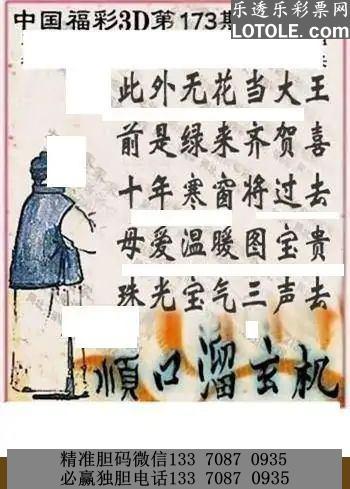 乐透乐彩票网
LOTOLE.com
中国福彩3D第173期
此外无花当大王
前是绿来齐贺喜
十年寒窗将过去
母爱温暖图宝贵
珠光宝气三声去
顺口溜玄机
精准胆码微信133 7087 0935
必赢独胆电话133 7087 0935